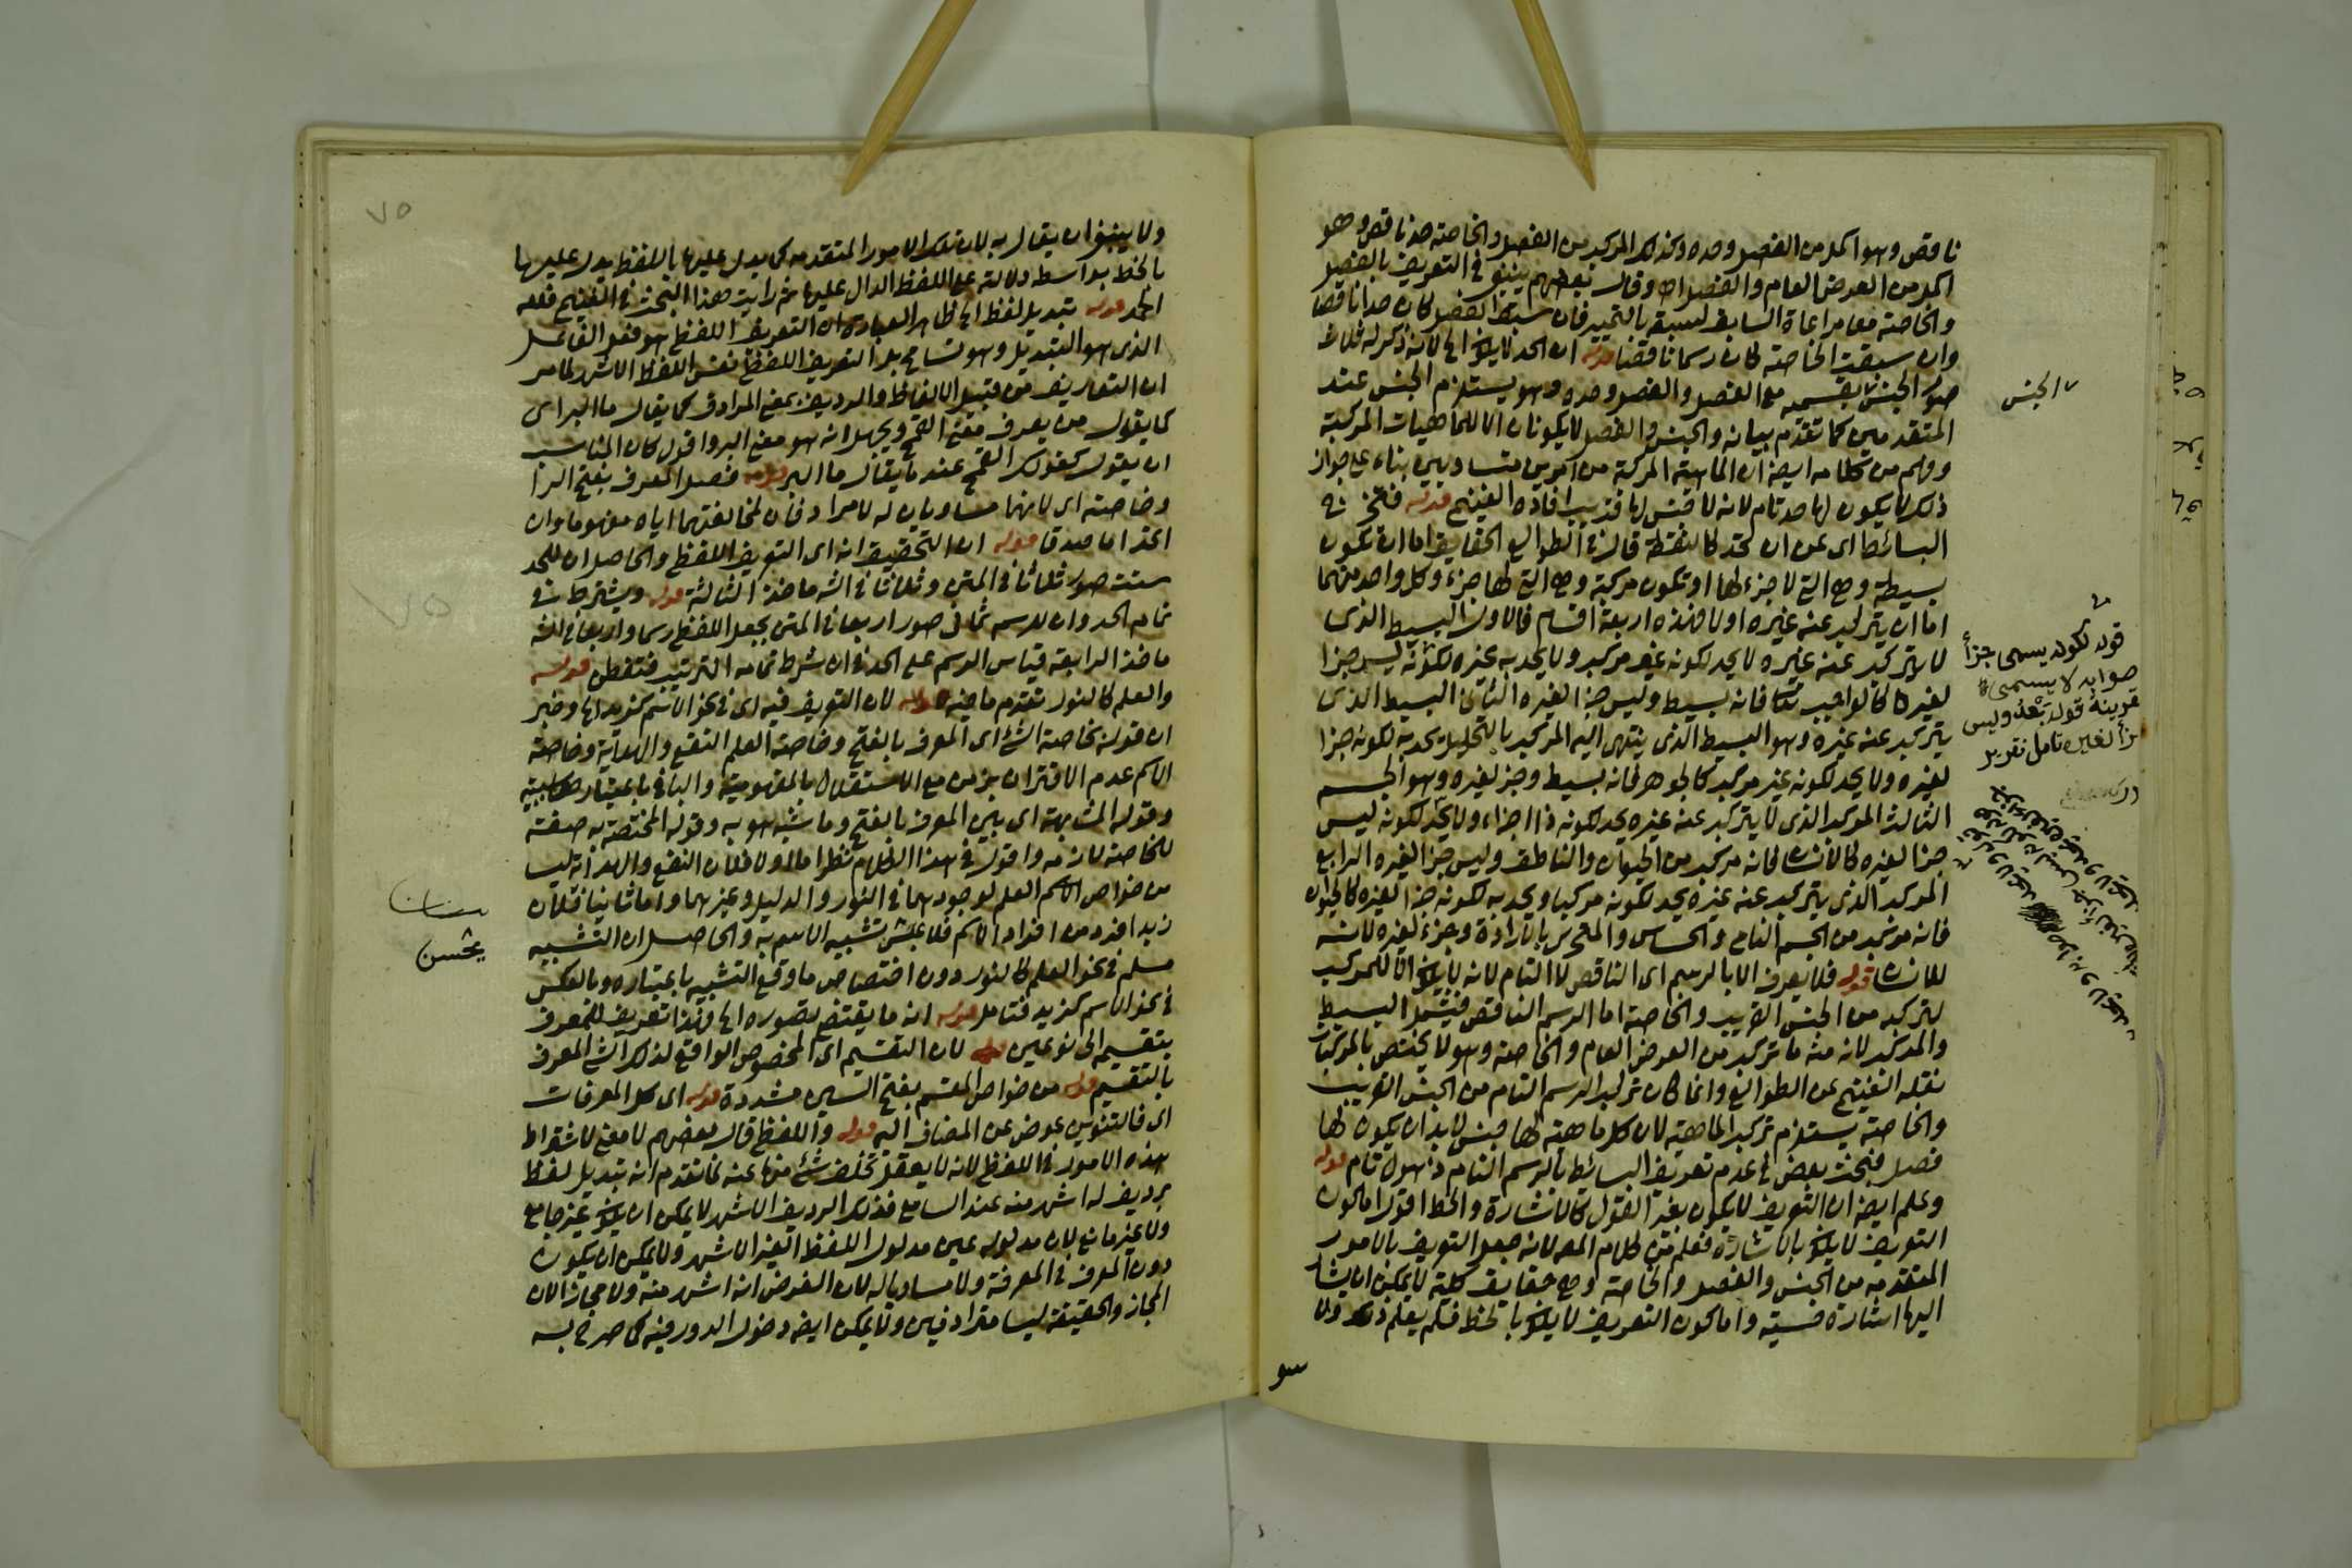 ناقص وهو اكمل من الفصل وحده وكذلك المركب من الفصل والخاصة حد ناقص وهو
اكمل من العرض العام والفصل اه وقال بعضهم ينبغي في التعريف بالفصل
والخاصة معا مراعاة السابق لسبقه بالتمييز فان سبق الفصل كان حدا ناقصا
وان سبقت الخاصة كان رسما ناقصا قوله ان الحد لا يكون الخ لانه ذكر له ثلاث
صور الجنس بقسميه مع الفصل والفصل وحده وهو يستلزم الجنس عند
المتقدمين كما تقدم بيانه والجنس والفصل لا يكونان الا للماهيات المركبة
وفهم من كلامه ايضا ان الماهية المركبة من امرين متساويين بناء على جواز
ذلك لا يكون لها حد تام لانه لا جنس لها قريب افاده الغنيمي قوله فتخرج
البسائط اى عن ان تحد كالنقطة قال في الطوالع الحقايق اما ان تكون
بسيطة وهى التى لا جزء لها او تكون مركبة وهى التى لها جزء وكل واحد منهما
اما ان يتركب عنه غيره اولا فهذه اربعة اقسام فالاول البسيط الذى
لا يتركب عنه غيره لا يحد لكونه غير مركب ولا يحد به غيره لكونه ليس جزا
لغيره كالواجب تعا فانه بسيط وليس جزا لغيره الثانى البسيط الذى
يتركب عنه غيره وهو البسيط الذى ينتهى اليه المركب بالتحليل يحد به لكونه جزا
لغيره ولا يحد لكونه غير مركب كالجوهر فانه بسيط وجزء لغيره وهو الجسم
الثالث المركب الذى لا يتركب عنه غيره يحد لكونه ذا اجزاء ولا يحد لكونه ليس
جزا لغيره كالانسان فانه مركب من الحيوان والناطق وليس جزا لغيره الرابع
المركب الذى يتركب عنه غيره يحد لكونه مركبا ويحد به لكونه جزا لغيره كالحيوان
فانه مركب من الجسم النامى والحساس والمتحرك بالارادة وجزء لغيره لانه
للانسان قوله فلا يعرف الا بالرسم اى الناقص لا التام لانه لا يكون الا للمركب
لتركبه من الجنس القريب والخاصة اما الرسم الناقص فيشمل البسيط
والمركب لانه منه ما تركب من العرض العام والخاصة وهو لا يختص بالمركبات
نقله الغنيمي عن الطوالع وانما كان تركب الرسم التام من الجنس القريب
والخاصة يستلزم تركب الماهية لان كل ماهية لها جنس لا بد ان يكون لها
فصل فبحث بعض في عدم تعريف البسائط بالرسم التام ذهول تام قوله
وعلم ايضا ان التعريف لا يكون بغير القول كالاشارة والخط اقول اما كون
التعريف لا يكون بالاشارة فعلم من كلام المصر لانه جعل التعريف بالامور
المتقدمة من الجنس والفصل والخاصة وهى حقايق كلية لا يمكن ان يشار
اليها اشارة حسية واما كون التعريف لا يكون بالخط فلم يعلم ذلك ولا
الجنس
قوله لكونه يسمى جزأ
صوابه لا يسمى
بقرينة قوله بعد وليس
جزأ لغيره تأمل تقرير
٧٥
ولا ينبغى ان يقال به لان تلك الامور المتقدمة كما يدل عليها باللفظ يدل عليها
بالخط بواسطة دلالته على اللفظ الدال عليها ثم رايت هذا البحث في الغنيمي فلله
الحمد قوله تبديل لفظ الخ ظاهر العبارة ان التعريف اللفظي هو فعل الفاعل
الذى هو التبديل وهو تسامح بل التعريف اللفظي نفس اللفظ الاشهر لما مر
ان التعاريف من قبيل الالفاظ والرديف بمعنى المرادف كما يقال ما البر اى
كما يقول من يعرف معنى القمح ويجهل انه هو معنى البر واقول كان المناسب
ان يقول كقولك القمح عند ما يقال ما البر قوله فصل المعرف بفتح الرا
وخاصته اى لانهما مساويان له لا مرادفان لمخالفتهما اياه مفهوما وان
اتحدا ما صدقا قوله ان التحقيق انه اى التعريف اللفظي والحاصل ان للحد
ست صور ثلاثا في المتن وثلاثا في الشر ماخذ الثالثة قوله ويشترط في
تمام الحد وان للرسم ثمانى صور اربعا في المتن بجعل اللفظي رسما واربعا في الشر
ماخذ الرابعة قياس الرسم على الحد في ان شرط تمامه الترتيب فتفطن قوله
والعلم كالنور تقدم ما فيه قوله لان التعريف فيه اى في نحو الاسم كزيد الخ وخبر
ان قوله بخاصة الشئ اى المعرف بالفتح وخاصة العلم النفع والهداية وخاصة
الاسم عدم الاقتران بزمن مع الاستقلال بالمفهومية والباء باعتبار
وقوله المشابهة اى بين المعرف بالفتح وما شبه هو به وقوله المختصة به صفة
للخاصة لازمه واقول في هذا الكلام نظر اما اولا فلان النفع والهداية ليسا
من خواص الاسم العلم لوجودهما في النور والدليل وغيرهما واما ثانيا فلان
زيدا فرد من افراد الاسم فلا يحسن تشبيه الاسم به والحاصل ان التشبيه
مسلم في نحو العلم كالنور دون اختصاص ما وقع التشبيه باعتباره وبالعكس
في نحو الاسم كزيد فتامل قوله انه ما يقتضى تصوره الخ فهذا تعريف للمعرف
بتقسيمه الى نوعين قوله لان التقسيم اى المخصوص الواقع لذلك الشئ المعرف
بالتقسيم قوله من خواص المقسم بفتح السين مشددة قوله اى كل المعرفات
اى فالتنوين عوض عن المضاف اليه قوله واللفظى قال بعضهم لا معنى لاشتراط
هذه الامور في اللفظي لانه لا يعقل تخلف شئ منها عنه لما تقدم انه تبديل لفظ
برديف له اشهر منه عند السامع فذلك الرديف الاشهر لا يمكن ان يكون غير جامع
ولا غير مانع لان مدلوله عين مدلول اللفظ الغير الاشهر ولا يمكن ان يكون
دون المعرف في المعرفة ولا مساويا له لان الفرض انه اشهر منه ولا مجازا لان
المجاز والحقيقة ليسا مترادفين ولا يمكن ايضا دخول الدور فيه كما صرح به
يحسن